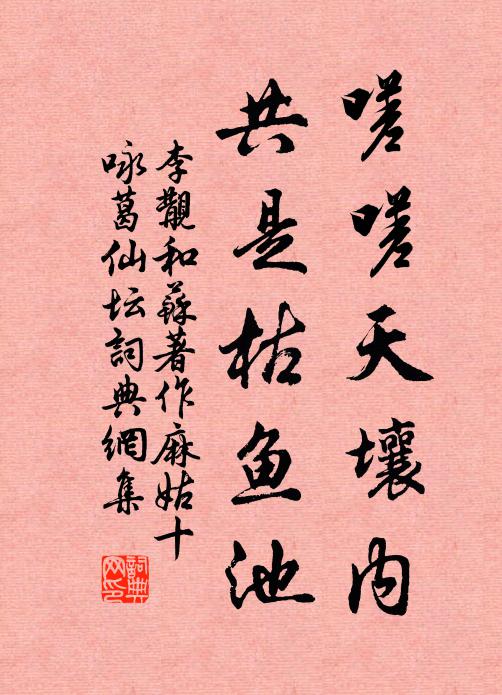 嗟嗟天壤内
共是枯鱼池
李觏和蘇著作麻姑十
咏葛仙坛詞典網集
詞典
网印